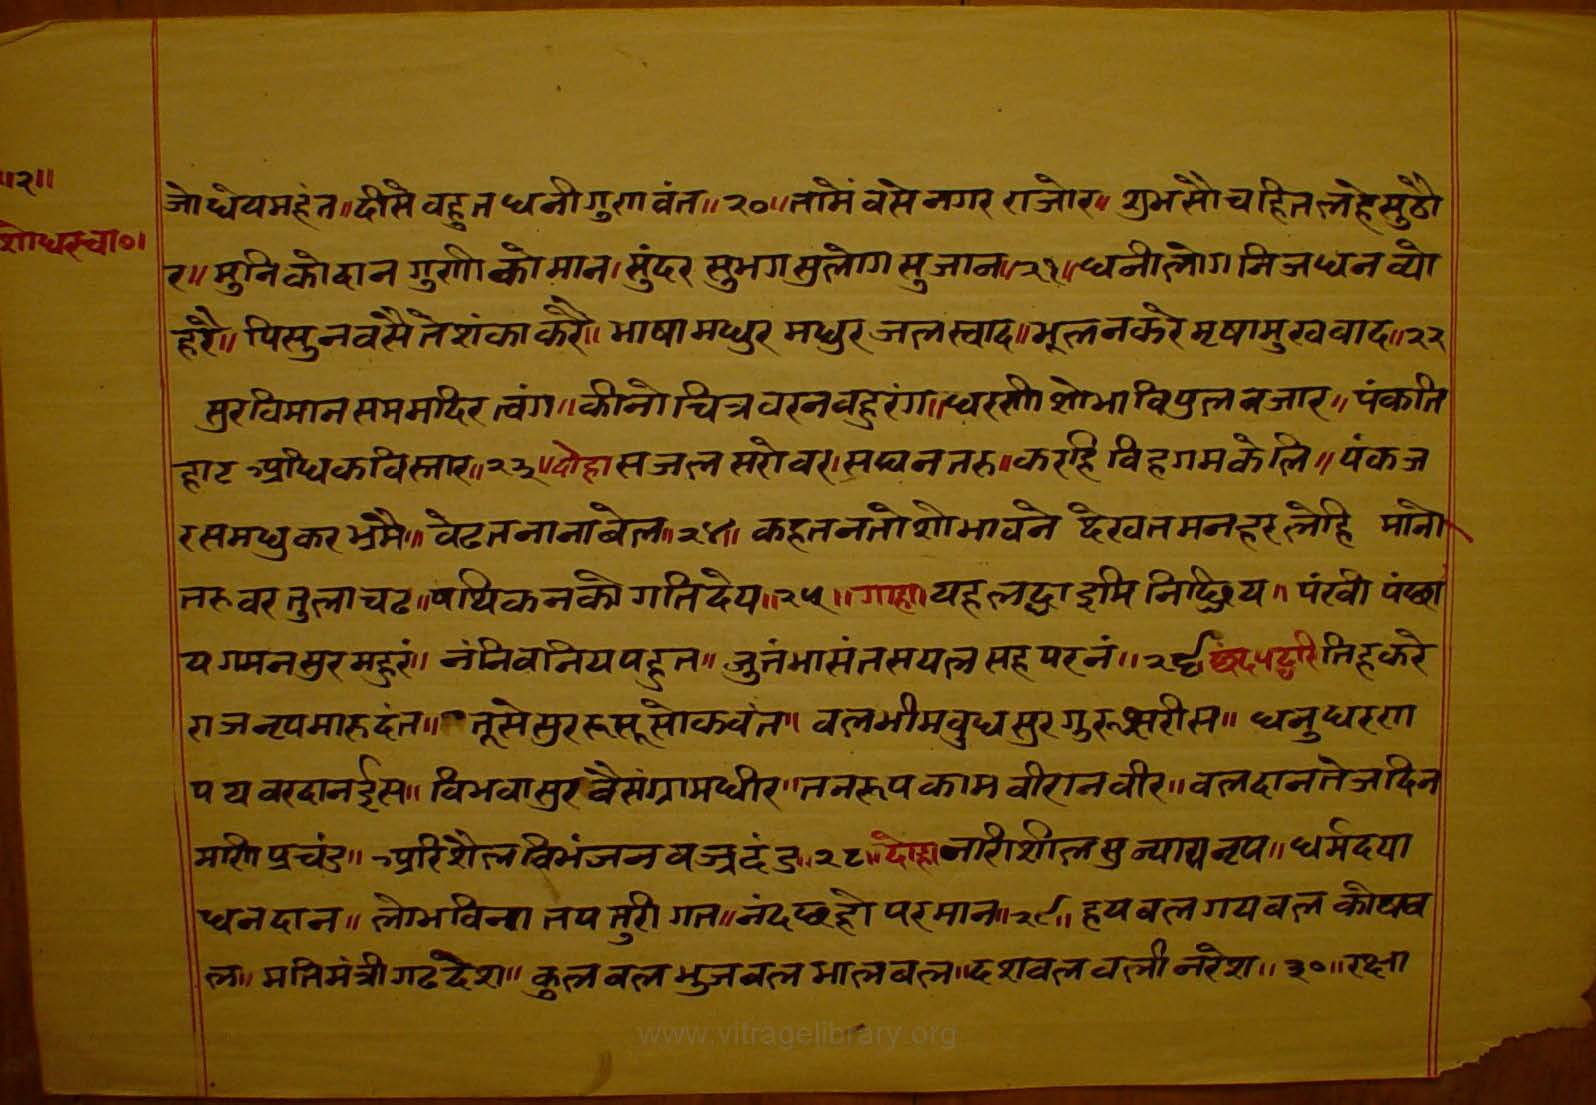 ॥२॥
शोधरचा०।
जोधेयमहंत॥दीसे वहुत धनी गुणवंत॥२०॥तामें वसे नगर राजोर॥ शुभ सौ चहित लहे सुठौ
र॥ मुनि को दान गुणी को मान। सुंदर सुभग सुलोग सुजान॥२१॥ धनी लोग निज धन व्यो
हरै॥ पिसुन वसै ते शंका करै॥ भाषा मधुर मधुर जल स्वाद॥ भूल न करे मृषा मुख वाद॥२२
सुर विमान सम मदिर त्वंग॥ कीनो चित्र वरन वहु रंग॥ धरणी शोभा विपुल वजार॥ पंकति
हाट अधिक विस्तार॥२३॥दोहा सजल सरोवर।सघन तरु॥करहि विहगम केलि॥ पंकज
रस मधुकर भ्रमै॥ वेढत नाना बेल॥२४॥ कहत न तो शोभा वने देखत मन हर लेहि मानो
तरुवर तुला चढ॥पथिकन कौ गति देय॥२५॥ गाहा।यह लद्धा इमि निछिय॥ पंखी पंछा
य गमन सुर महुरं॥ नं निव निय पहुत॥ जुतं भासंत सयल सह परनं॥२६ छंद पद्धरि तिह करे
राज नृप मारुदंत॥ तूसे सुर रूसू सोकवंत॥ वल भीम वुध सुर गुरु सरीस॥ धनुधरण
पय वरदान ईस॥ विभवासुर वैसंग्राम धीर॥तन रूप काम वीरान वीर॥वल दान तेज दिन
मणि प्रचंड॥ अरि शैल विभंजन वज्र दंड॥२८॥दोहा।नारी शील सु न्याय नृप॥ धर्म दया
धन दान॥ लोभ विना तप तुरी गत॥नंद छहो परमान॥२९॥ हय वल गय वल कोष व
ल॥ मति मंत्री गढ देश॥ कुल वल भुज वल भाल वल॥दश वल वली नरेश॥ ३०॥रक्षा
www.vitragelibrary.org